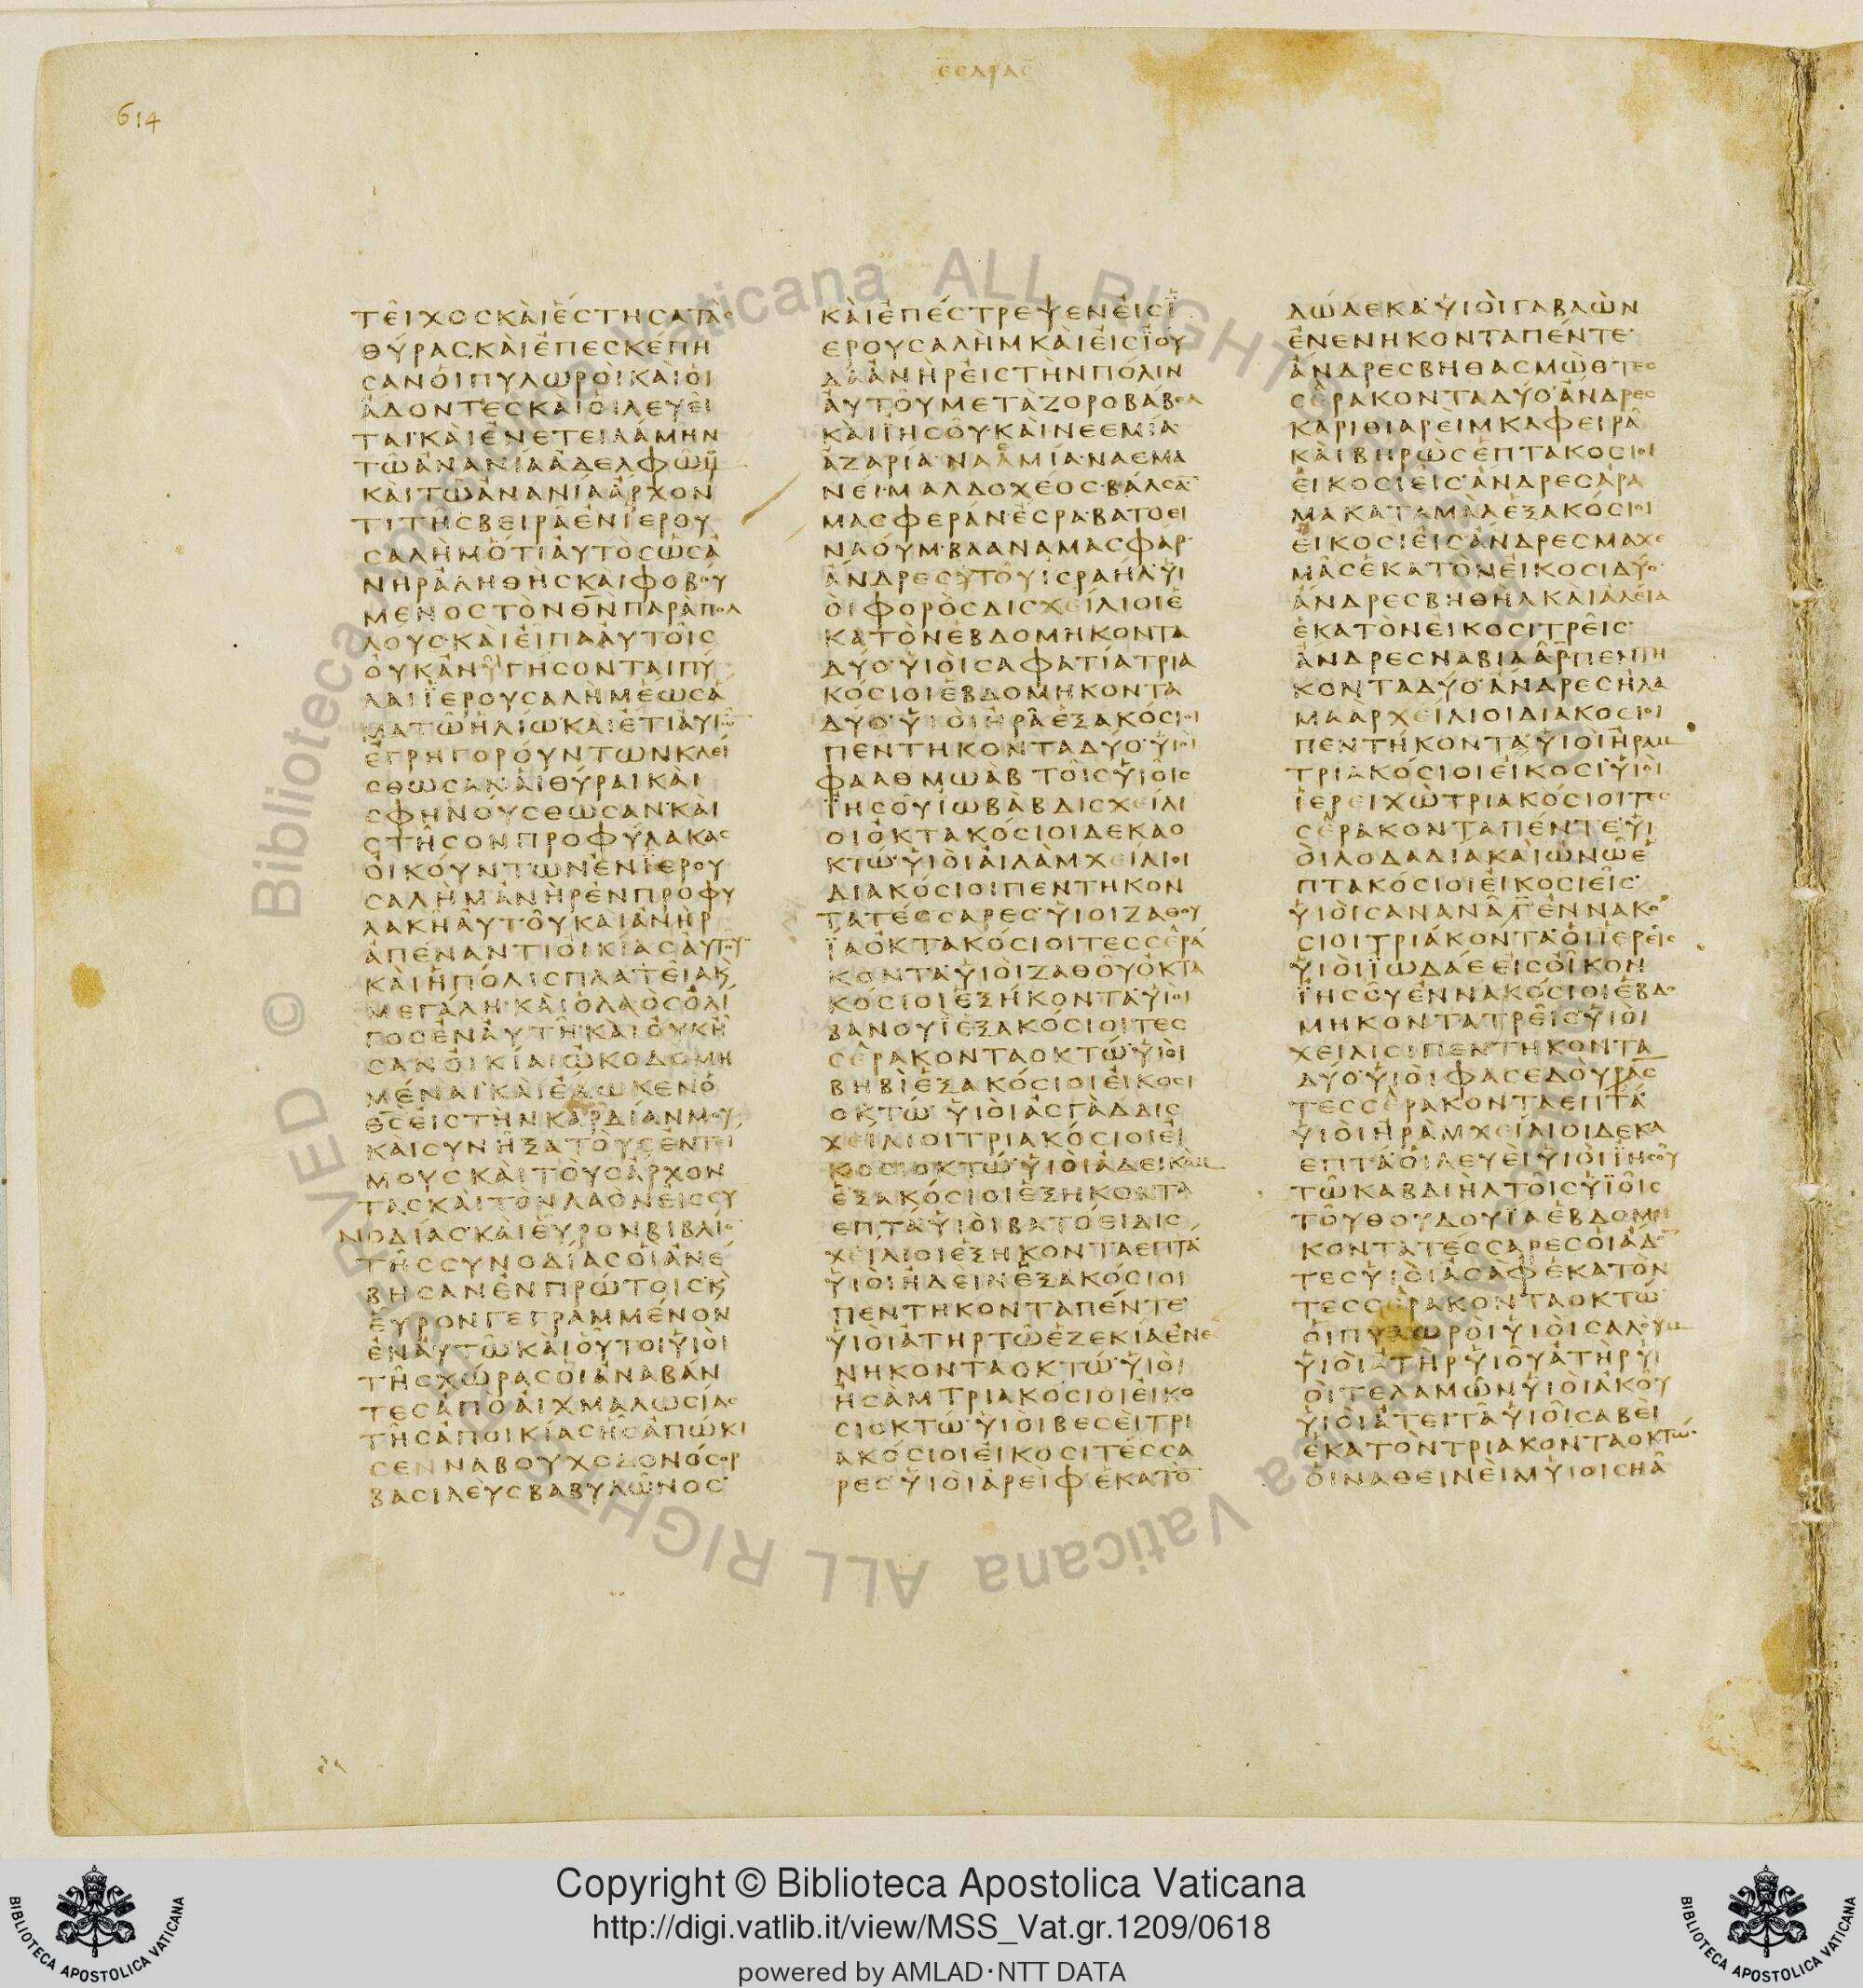 ΕСΔΡΑС
614
ΤΕΙΧΟСΚΑΙΕСΤΗСΑΤΑС
ΘΥΡΑСΚΑΙΕΠΕСΚΕΠΗ
СΑΝΟΙΠΥΛΩΡΟΙΚΑΙΟΙ
ΑΔΟΝΤΕСΚΑΙΟΙΛΕΥΕΙ
ΤΑΙΚΑΙΕΝΕΤΕΙΛΑΜΗΝ
ΤΩΑΝΑΝΙΑΑΔΕΛΦΩΜ
ΚΑΙΤΩΑΝΑΝΙΑΑΡΧΟΝ
ΤΙΤΗСΒΕΙΡΑΕΝΪΕΡΟΥ
СΑΛΗΜΟΤΙΑΥΤΟСΩСΑ
ΝΗΡΑΛΗΘΗСΚΑΙΦΟΒΟΥ
ΜΕΝΟСΤΟΝΘΝΠΑΡΑΠΟΛ
ΛΟΥСΚΑΙΕΙΠΑΑΥΤΟΙС
ΟΥΚΑΝΥΓΗСΟΝΤΑΙΠΥ
ΛΑΙΪΕΡΟΥСΑΛΗΜΕΩСΑ
ΜΑΤΩΗΛΙΩΚΑΙΕΤΙΑΥΤΩ
ΕΓΡΗΓΟΡΟΥΝΤΩΝΚΛΕΙ
СΘΩСΑΝΑΙΘΥΡΑΙΚΑΙ
СΦΗΝΟΥСΘΩСΑΝΚΑΙ
СΤΗСΟΝΠΡΟΦΥΛΑΚΑС
ΟΙΚΟΥΝΤΩΝΕΝΪΕΡΟΥ
СΑΛΗΜΑΝΗΡΕΝΠΡΟΦΥ
ΛΑΚΗΑΥΤΟΥΚΑΙΑΝΗΡ
ΑΠΕΝΑΝΤΙΟΙΚΙΑСΑΥΤΟΥ
ΚΑΙΗΠΟΛΙСΠΛΑΤΕΙΑΚ
ΜΕΓΑΛΗΚΑΙΟΛΑΟСΟΛΙ
ΓΟСΕΝΑΥΤΗΚΑΙΟΥΚΗ
СΑΝΟΙΚΙΑΙΩΚΟΔΟΜΗ
ΜΕΝΑΙΚΑΙΕΔΩΚΕΝΟ
ΘСΕΙСΤΗΝΚΑΡΔΙΑΝΜΟΥ
ΚΑΙСΥΝΗΞΑΤΟΥСΕΝΤΙ
ΜΟΥСΚΑΙΤΟΥСΑΡΧΟΝ
ΤΑСΚΑΙΤΟΝΛΑΟΝΕΙССΥ
ΝΟΔΙΑСΚΑΙΕΥΡΟΝΒΙΒΛΙΟ
ΤΗССΥΝΟΔΙΑСΟΙΑΝΕ
ΒΗСΑΝΕΝΠΡΩΤΟΙСΚ
ΕΥΡΟΝΓΕΓΡΑΜΜΕΝΟΝ
ΕΝΑΥΤΩΚΑΙΟΥΤΟΙΥΙΟΙ
ΤΗСΧΩΡΑСΟΙΑΝΑΒΑΝ
ΤΕСΑΠΟΑΙΧΜΑΛΩСΙΑС
ΤΗСΑΠΟΙΚΙΑСΗСΑΠΩΚΙ
СΕΝΝΑΒΟΥΧΟΔΟΝΟСΟΡ
ΒΑСΙΛΕΥСΒΑΒΥΛΩΝΟС
ΚΑΙΕΠΕСΤΡΕΨΕΝΕΙСΪ
ΕΡΟΥСΑΛΗΜΚΑΙΕΙСΪΟΥ
ΔΑΑΝΗΡΕΙСΤΗΝΠΟΛΙΝ
ΑΥΤΟΥΜΕΤΑΖΟΡΟΒΑΒΕΛ
ΚΑΙΪΗСΟΥΚΑΙΝΕΕΜΙΑ
ΑΖΑΡΙΑ·ΝΑΑΜΙΑ·ΝΑΕΜΑ
ΝΕΙ·ΜΑΛΔΟΧΕΟС·ΒΑΛСΑ
ΜΑСΦΕΡΑΝ·ΕСΡΑ·ΒΑΤΟΕΙ
ΝΑΟΥΜ·ΒΑΑΝΑΜΑСΦΑΡ·
ΑΝΔΡΕСΥΤΟΥΙСΡΑΗΛΥΙ
ΟΙΦΟΡΟСΔΙСΧΕΙΛΙΟΙΕ
ΚΑΤΟΝΕΒΔΟΜΗΚΟΝΤΑ
ΔΥΟΥΙΟΙСΑΦΑΤΙΑΤΡΙΑ
ΚΟСΙΟΙΕΒΔΟΜΗΚΟΝΤΑ
ΔΥΟΥΙΟΙΗΡΑΕΞΑΚΟСΙΟΙ
ΠΕΝΤΗΚΟΝΤΑΔΥΟΥΙΟΙ
ΦΑΑΘΜΩΑΒΤΟΙСΥΙΟΙС
ΪΗСΟΥΪΩΒΑΒΔΙСΧΕΙΛΙ
ΟΙΟΚΤΑΚΟСΙΟΙΔΕΚΑΟ
ΚΤΩΥΙΟΙΑΙΛΑΜΧΕΙΛΙΟΙ
ΔΙΑΚΟСΙΟΙΠΕΝΤΗΚΟΝ
ΤΑΤΕССΑΡΕСΥΙΟΙΖΑΘΟΥ
ΪΑΟΚΤΑΚΟСΙΟΙΤΕССΕΡΑ
ΚΟΝΤΑΥΙΟΙΖΑΘΟΥΟΚΤΑ
ΚΟСΙΟΙΕΞΗΚΟΝΤΑΥΙΟΙ
ΒΑΝΟΥΪΕΞΑΚΟСΙΟΙΤΕС
СΕΡΑΚΟΝΤΑΟΚΤΩΥΙΟΙ
ΒΗΒΙΕΞΑΚΟСΙΟΙΕΙΚΟСΙ
ΟΚΤΩΥΙΟΙΑСΓΑΔΔΙС
ΧΕΙΛΙΟΙΤΡΙΑΚΟСΙΟΙΕΙ
ΚΟСΙΟΚΤΩΥΙΟΙΑΔΕΙΚΑΜ
ΕΞΑΚΟСΙΟΙΕΞΗΚΟΝΤΑ
ΕΠΤΑΥΙΟΙΒΑΤΟΕΙΔΙС
ΧΕΙΛΙΟΙΕΞΗΚΟΝΤΑΕΠΤΑ
ΥΙΟΙΗΔΕΙΝΕΞΑΚΟСΙΟΙ
ΠΕΝΤΗΚΟΝΤΑΠΕΝΤΕ
ΥΙΟΙΑΤΗΡΤΩΕΖΕΚΙΑΕΝΕ
ΝΗΚΟΝΤΑΟΚΤΩΥΙΟΙ
ΗСΑΜΤΡΙΑΚΟСΙΟΙΕΙΚΟ
СΙΟΚΤΩΥΙΟΙΒΕСΕΙΤΡΙ
ΑΚΟСΙΟΙΕΙΚΟСΙΤΕССΑ
ΡΕСΥΙΟΙΑΡΕΙΦΕΚΑΤΟ
ΔΩΔΕΚΑΥΙΟΙΓΑΒΑΩΝ
ΕΝΕΝΗΚΟΝΤΑΠΕΝΤΕ
ΑΝΔΡΕСΒΗΘΑСΜΩΘΤΕС
СΕΡΑΚΟΝΤΑΔΥΟΑΝΔΡΕС
ΚΑΡΙΘΙΑΡΕΙΜΚΑΦΕΙΡΑ
ΚΑΙΒΗΡΩСΕΠΤΑΚΟСΙΟΙ
ΕΙΚΟСΙΕΙСΑΝΔΡΕСΑΡΑ
ΜΑΚΑΤΑΜΑΛΕΞΑΚΟСΙΟΙ
ΕΙΚΟСΙΕΙСΑΝΔΡΕСΜΑΧΕ
ΜΑСΕΚΑΤΟΝΕΙΚΟСΙΔΥΟ
ΑΝΔΡΕСΒΗΘΗΛΚΑΙΑΛΕΙΑ
ΕΚΑΤΟΝΕΙΚΟСΙΤΡΕΙС
ΑΝΔΡΕСΝΑΒΙΑΑΡΠΕΝΤΗ
ΚΟΝΤΑΔΥΟΑΝΔΡΕСΗΛΑ
ΜΑΑΡΧΕΙΛΙΟΙΔΙΑΚΟСΙΟΙ
ΠΕΝΤΗΚΟΝΤΑΥΙΟΙΗΡΑΜ
ΤΡΙΑΚΟСΙΟΙΕΙΚΟСΙΥΙΟΙ
ΪΕΡΕΙΧΩΤΡΙΑΚΟСΙΟΙΤΕС
СΕΡΑΚΟΝΤΑΠΕΝΤΕΥΙ
ΟΙΛΟΔΑΔΙΑΚΑΙΩΝΩΕ
ΠΤΑΚΟСΙΟΙΕΙΚΟСΙΕΙС
ΥΙΟΙСΑΝΑΝΑΤΕΝΝΑΚΟ
СΙΟΙΤΡΙΑΚΟΝΤΑΟΙΪΕΡΕΙС
ΥΙΟΙΪΩΔΑΕΕΙСΟΙΚΟΝ
ΪΗСΟΥΕΝΝΑΚΟСΙΟΙΕΒΔΟ
ΜΗΚΟΝΤΑΤΡΕΙСΥΙΟΙ
ΧΕΙΛΙΟΙΠΕΝΤΗΚΟΝΤΑ
ΔΥΟΥΙΟΙΦΑСΕΔΟΥΡΑС
ΤΕССΕΡΑΚΟΝΤΑΕΠΤΑ
ΥΙΟΙΗΡΑΜΧΕΙΛΙΟΙΔΕΚΑ
ΕΠΤΑΟΙΛΕΥΕΙΥΙΟΙΪΗСΟΥ
ΤΩΚΑΒΔΙΗΛΤΟΙСΥΪΟΙС
ΤΟΥΘΟΥΔΟΥΪΑΕΒΔΟΜΗ
ΚΟΝΤΑΤΕССΑΡΕСΟΙΑΔΟ
ΤΕСΥΙΟΙΑСΑΦΕΚΑΤΟΝ
ΤΕССΕΡΑΚΟΝΤΑΟΚΤΩ
ΟΙΠΥΛΩΡΟΙΥΙΟΙСΑΛΟΥΜ
ΥΙΟΙΑΤΗΡΥΙΟΥΑΤΗΡΥΙ
ΟΙΤΕΛΑΜΩΝΥΙΟΙΑΚΟΥ
ΥΙΟΙΑΤΕΙΤΑΥΙΟΙСΑΒΕΙ
ΕΚΑΤΟΝΤΡΙΑΚΟΝΤΑΟΚΤΩ
ΟΙΝΑΘΕΙΝΕΙΜΥΙΟΙСΗΑ
Copyright © Biblioteca Apostolica Vaticana
http://digi.vatlib.it/view/MSS_Vat.gr.1209/0618
powered by AMLAD·NTT DATA
BIBLIOTECA APOSTOLICA VATICANA
BIBLIOTECA APOSTOLICA VATICANA